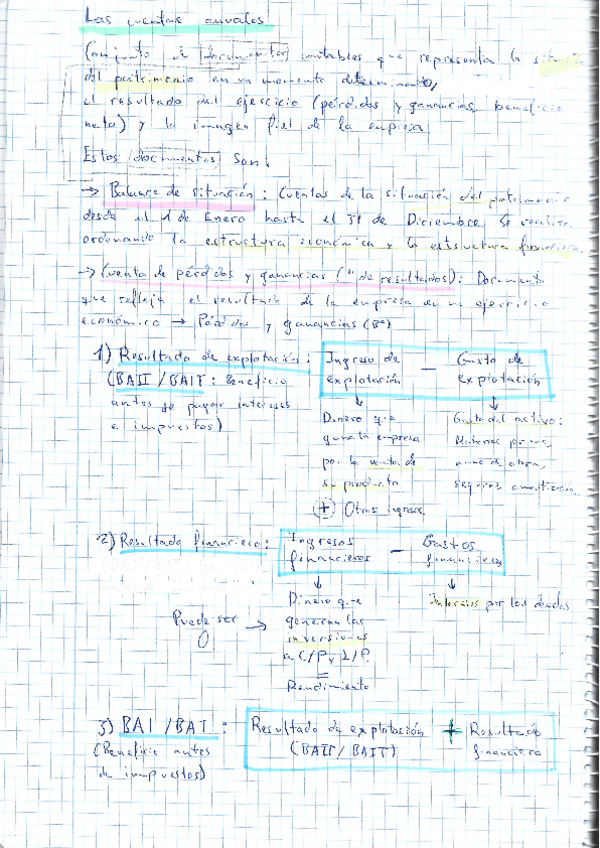 Las cuentas anuales
Conjunto de documentos contables que representa la situación
del patrimonio en un momento determinado,
el resultado del ejercicio (pérdidas y ganancias, beneficio
neto) y la imagen fiel de la empresa
Estos documentos son:
→ Balance de situación: Cuentas de la situación del patrimonio
desde el 1 de Enero hasta el 31 de Diciembre. Se realiza
ordenando la estructura económica y la estructura financiera.
→ Cuenta de pérdidas y ganancias (" de resultados): Documento
que refleja el resultado de la empresa en un ejercicio
económico → Pérdidas y ganancias (Bº)
1) Resultado de explotación: Ingreso de explotación − Gasto de explotación
(BAII / BAIT: Beneficio
antes de pagar intereses
e impuestos)
↓
Dinero que
gana la empresa
por la venta de
su producto
(+) Otros ingresos.
↓
Gasto del activo:
Materias primas,
mano de obra,
seguros, amortización.
2) Resultado financiero: Ingresos financieros − Gastos financieros
↓
Puede ser 0 →
Dinero que
generan las
inversiones
a C/P y L/P.
=
Rendimiento
↓
Intereses por las deudas
3) BAI / BAT: Resultado de explotación + Resultado
(BAII / BAIT) financiero
(Beneficio antes
de impuestos)